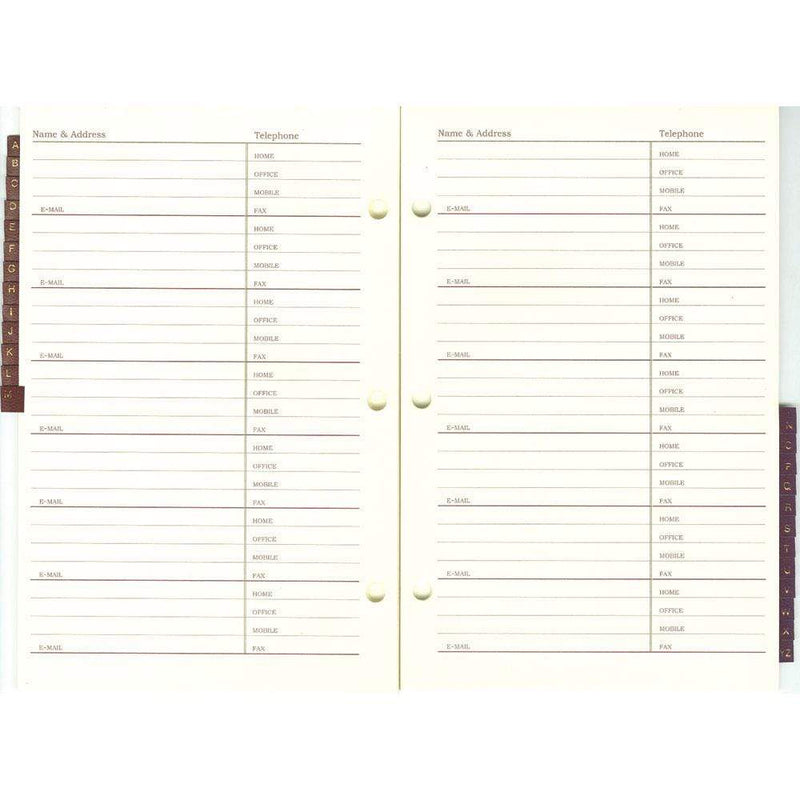 A
B
C
D
E
F
G
H
I
J
K
L
M
Name & Address Telephone
HOME
OFFICE
MOBILE
E-MAIL FAX
HOME
OFFICE
MOBILE
E-MAIL FAX
HOME
OFFICE
MOBILE
E-MAIL FAX
HOME
OFFICE
MOBILE
E-MAIL FAX
HOME
OFFICE
MOBILE
E-MAIL FAX
HOME
OFFICE
MOBILE
E-MAIL FAX
HOME
OFFICE
MOBILE
E-MAIL FAX
Name & Address Telephone
HOME
OFFICE
MOBILE
E-MAIL FAX
HOME
OFFICE
MOBILE
E-MAIL FAX
HOME
OFFICE
MOBILE
E-MAIL FAX
HOME
OFFICE
MOBILE
E-MAIL FAX
HOME
OFFICE
MOBILE
E-MAIL FAX
HOME
OFFICE
MOBILE
E-MAIL FAX
HOME
OFFICE
MOBILE
E-MAIL FAX
S
T
X